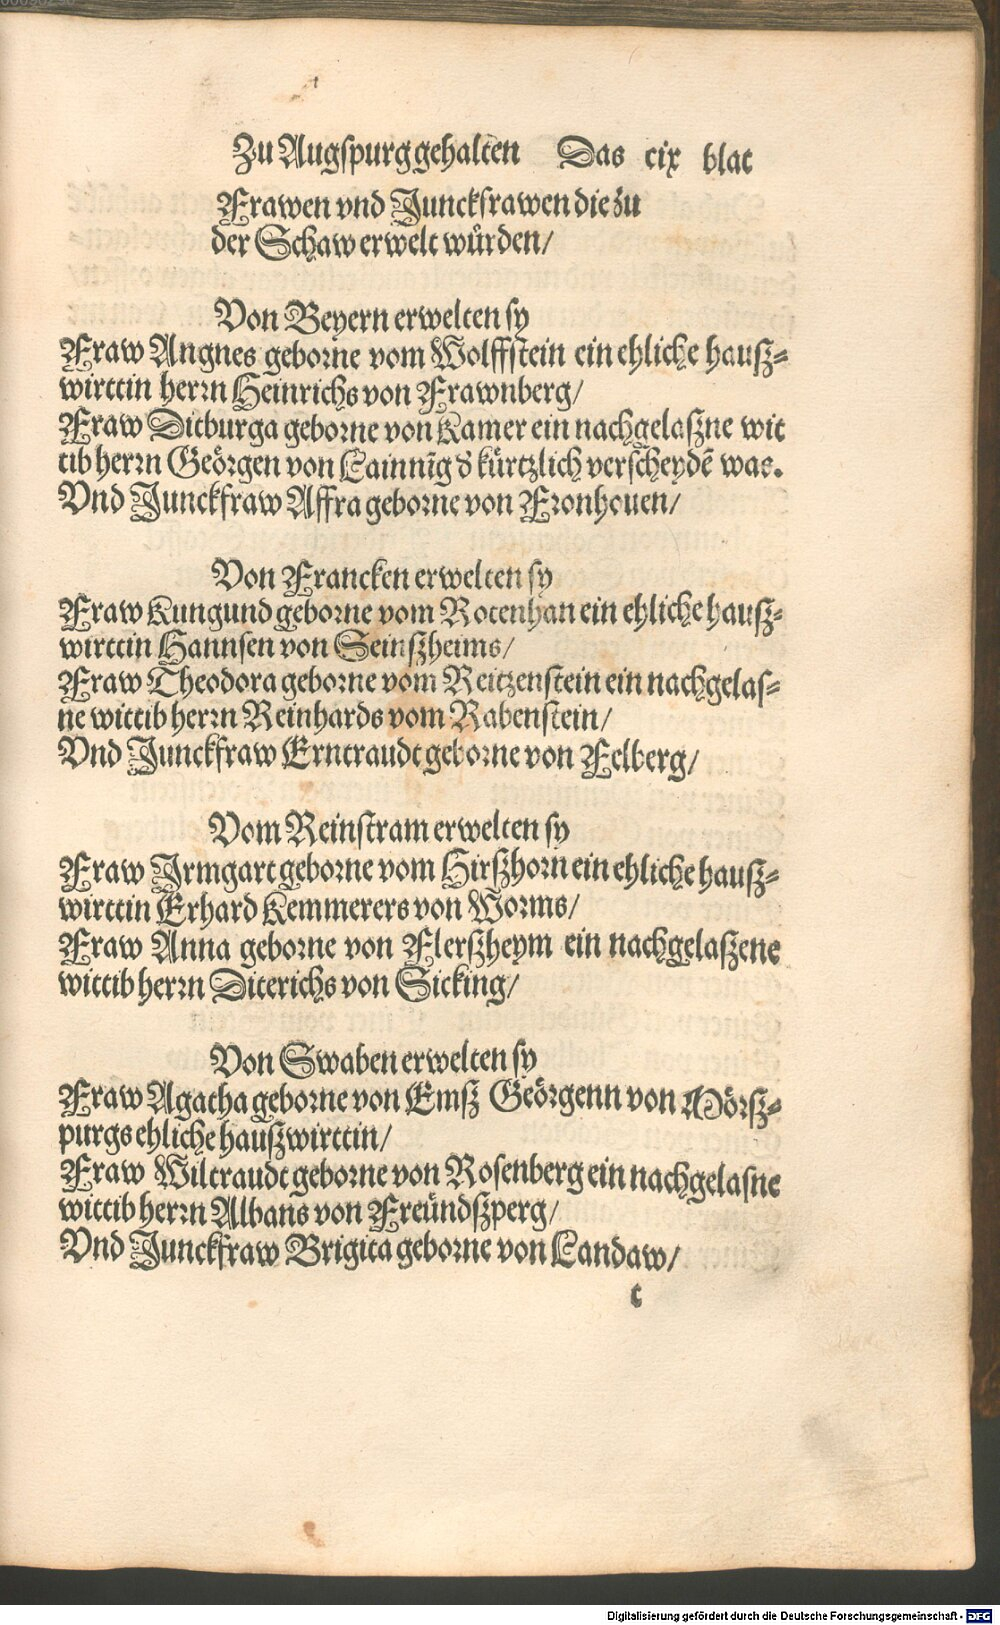 Zu Augspurg gehalten Das cix blat
Frawen vnd Junckfrawen die zu
der Schaw erwelt würden/
Von Beyern erwelten sy
Fraw Angnes geborne vom Wolffstein ein ehliche hausz⸗
wirttin herrn Heinrichs von Frawnberg/
Fraw Ditburga geborne von Kamer ein nachgelaszne wit
tib herrn Geörgen von Lainnīg d̕ kürtzlich verscheydē was.
Vnd Junckfraw Affra geborne von Fronhouen/
Von Francken erwelten sy
Fraw Kungund geborne vom Rotenhan ein ehliche hausz⸗
wirttin Hannsen von Seinszheims/
Fraw Theodora geborne vom Reitzenstein ein nachgelas⸗
ne wittib herrn Reinhards vom Rabenstein/
Vnd Junckfraw Erntraudt geborne von Felberg/
Vom Reinstram erwelten sy
Fraw Irmgart geborne vom Hirszhorn ein ehliche hausz⸗
wirttin Erhard Kemmerers von Worms/
Fraw Anna geborne von Flerszheym ein nachgelaszene
wittib herrn Diterichs von Sicking/
Von Swaben erwelten sy
Fraw Agatha geborne von Emsz Geörgenn von Mörsz⸗
purgs ehliche hauszwirttin/
Fraw Wiltraudt geborne von Rosenberg ein nachgelasne
wittib herrn Albans von Freündszperg/
Vnd Junckfraw Brigita geborne von Landaw/
t
Digitalisierung gefördert durch die Deutsche Forschungsgemeinschaft - DFG